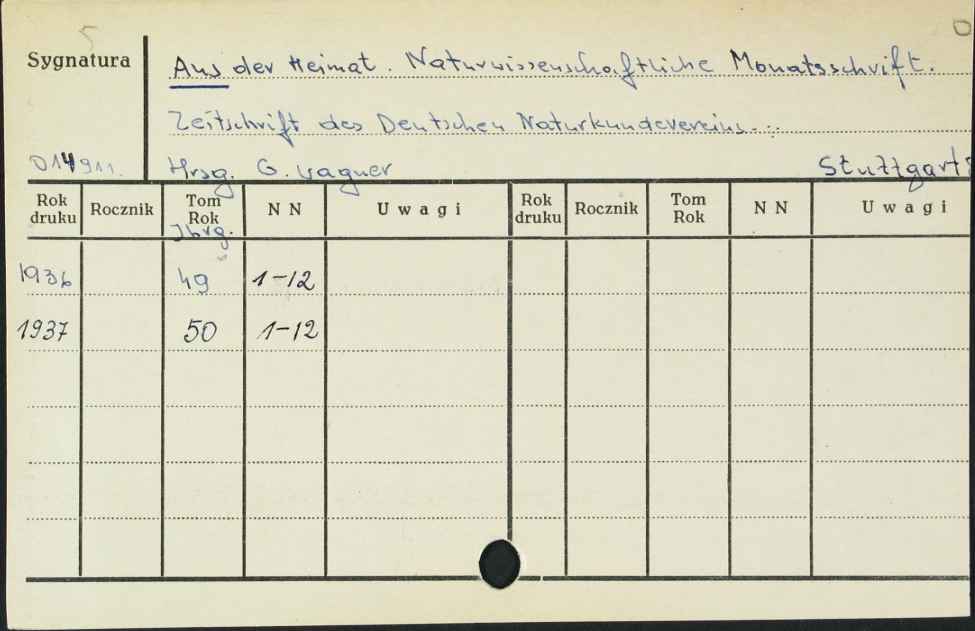 5
Sygnatura
Aus der Heimat. Naturwissenschaftliche Monatsschrift.
Zeitschrift des Deutschen Naturkundevereins.
Hrsg. G. Wagner Stuttgart
Rok druku Rocznik Tom Rok N N Uwagi Rok druku Rocznik Tom Rok N N Uwagi
Jhrg.
1936 49 1-12
1937 50 1-12